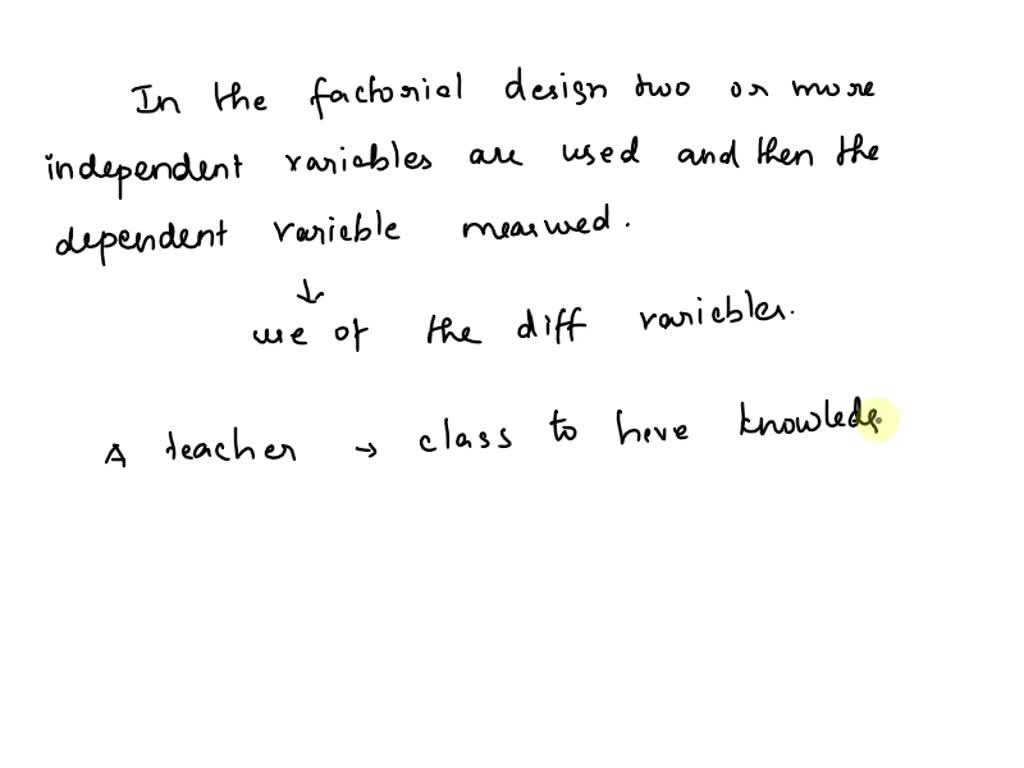 In the factorial design two or more
independent variables are used and then the
dependent variable measured.
↓
use of the diff variables.
A teacher → class to have knowledg